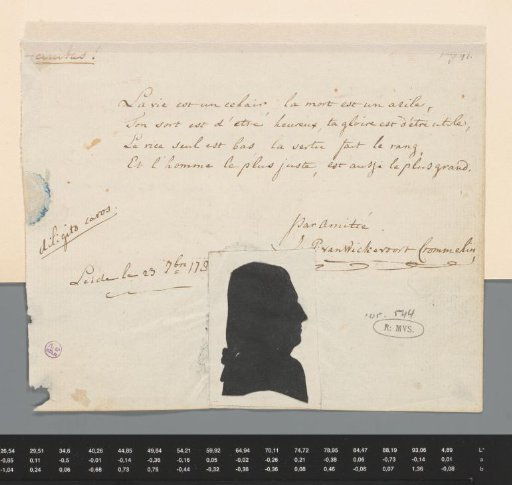 amitas!
La vie est un eclair la mort est un azile,
Ton sort est d'etre heureux, ta gloire est d'être utile,
Le vice seul est bas la vertu fait le rang,
Et l'homme le plus juste, est aussi le plus grand.
diligito caros.
par amitié.
P. van Wickevoort Crommelin,
Leide le 23 9bre 179
inv. 544
R: MVS.
26,54 29,51 34,6 40,26 44,85 49,64 54,21 59,92 64,94 70,11 74,72 78,95 84,47 88,19 93,06 4,69 L*
-0,85 0,11 -0,5 -0,01 -0,14 -0,36 -0,16 0,05 -0,02 -0,26 0,21 -0,38 0,06 -0,73 -0,14 0,01 a
-1,04 0,24 0,06 -0,66 0,73 0,75 -0,44 -0,32 -0,36 -0,36 0,08 0,46 -0,06 0,07 1,36 -0,08 b